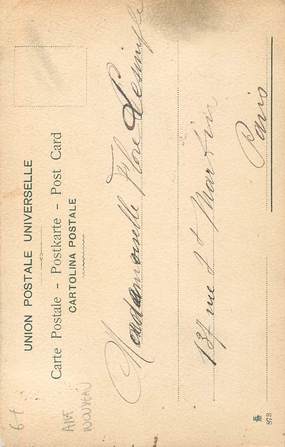 UNION POSTALE UNIVERSELLE
Carte Postale - Postkarte - Post Card
CARTOLINA POSTALE
Mademoiselle Flore
137 rue St Martin
Paris
873
ART
NOUVEAU